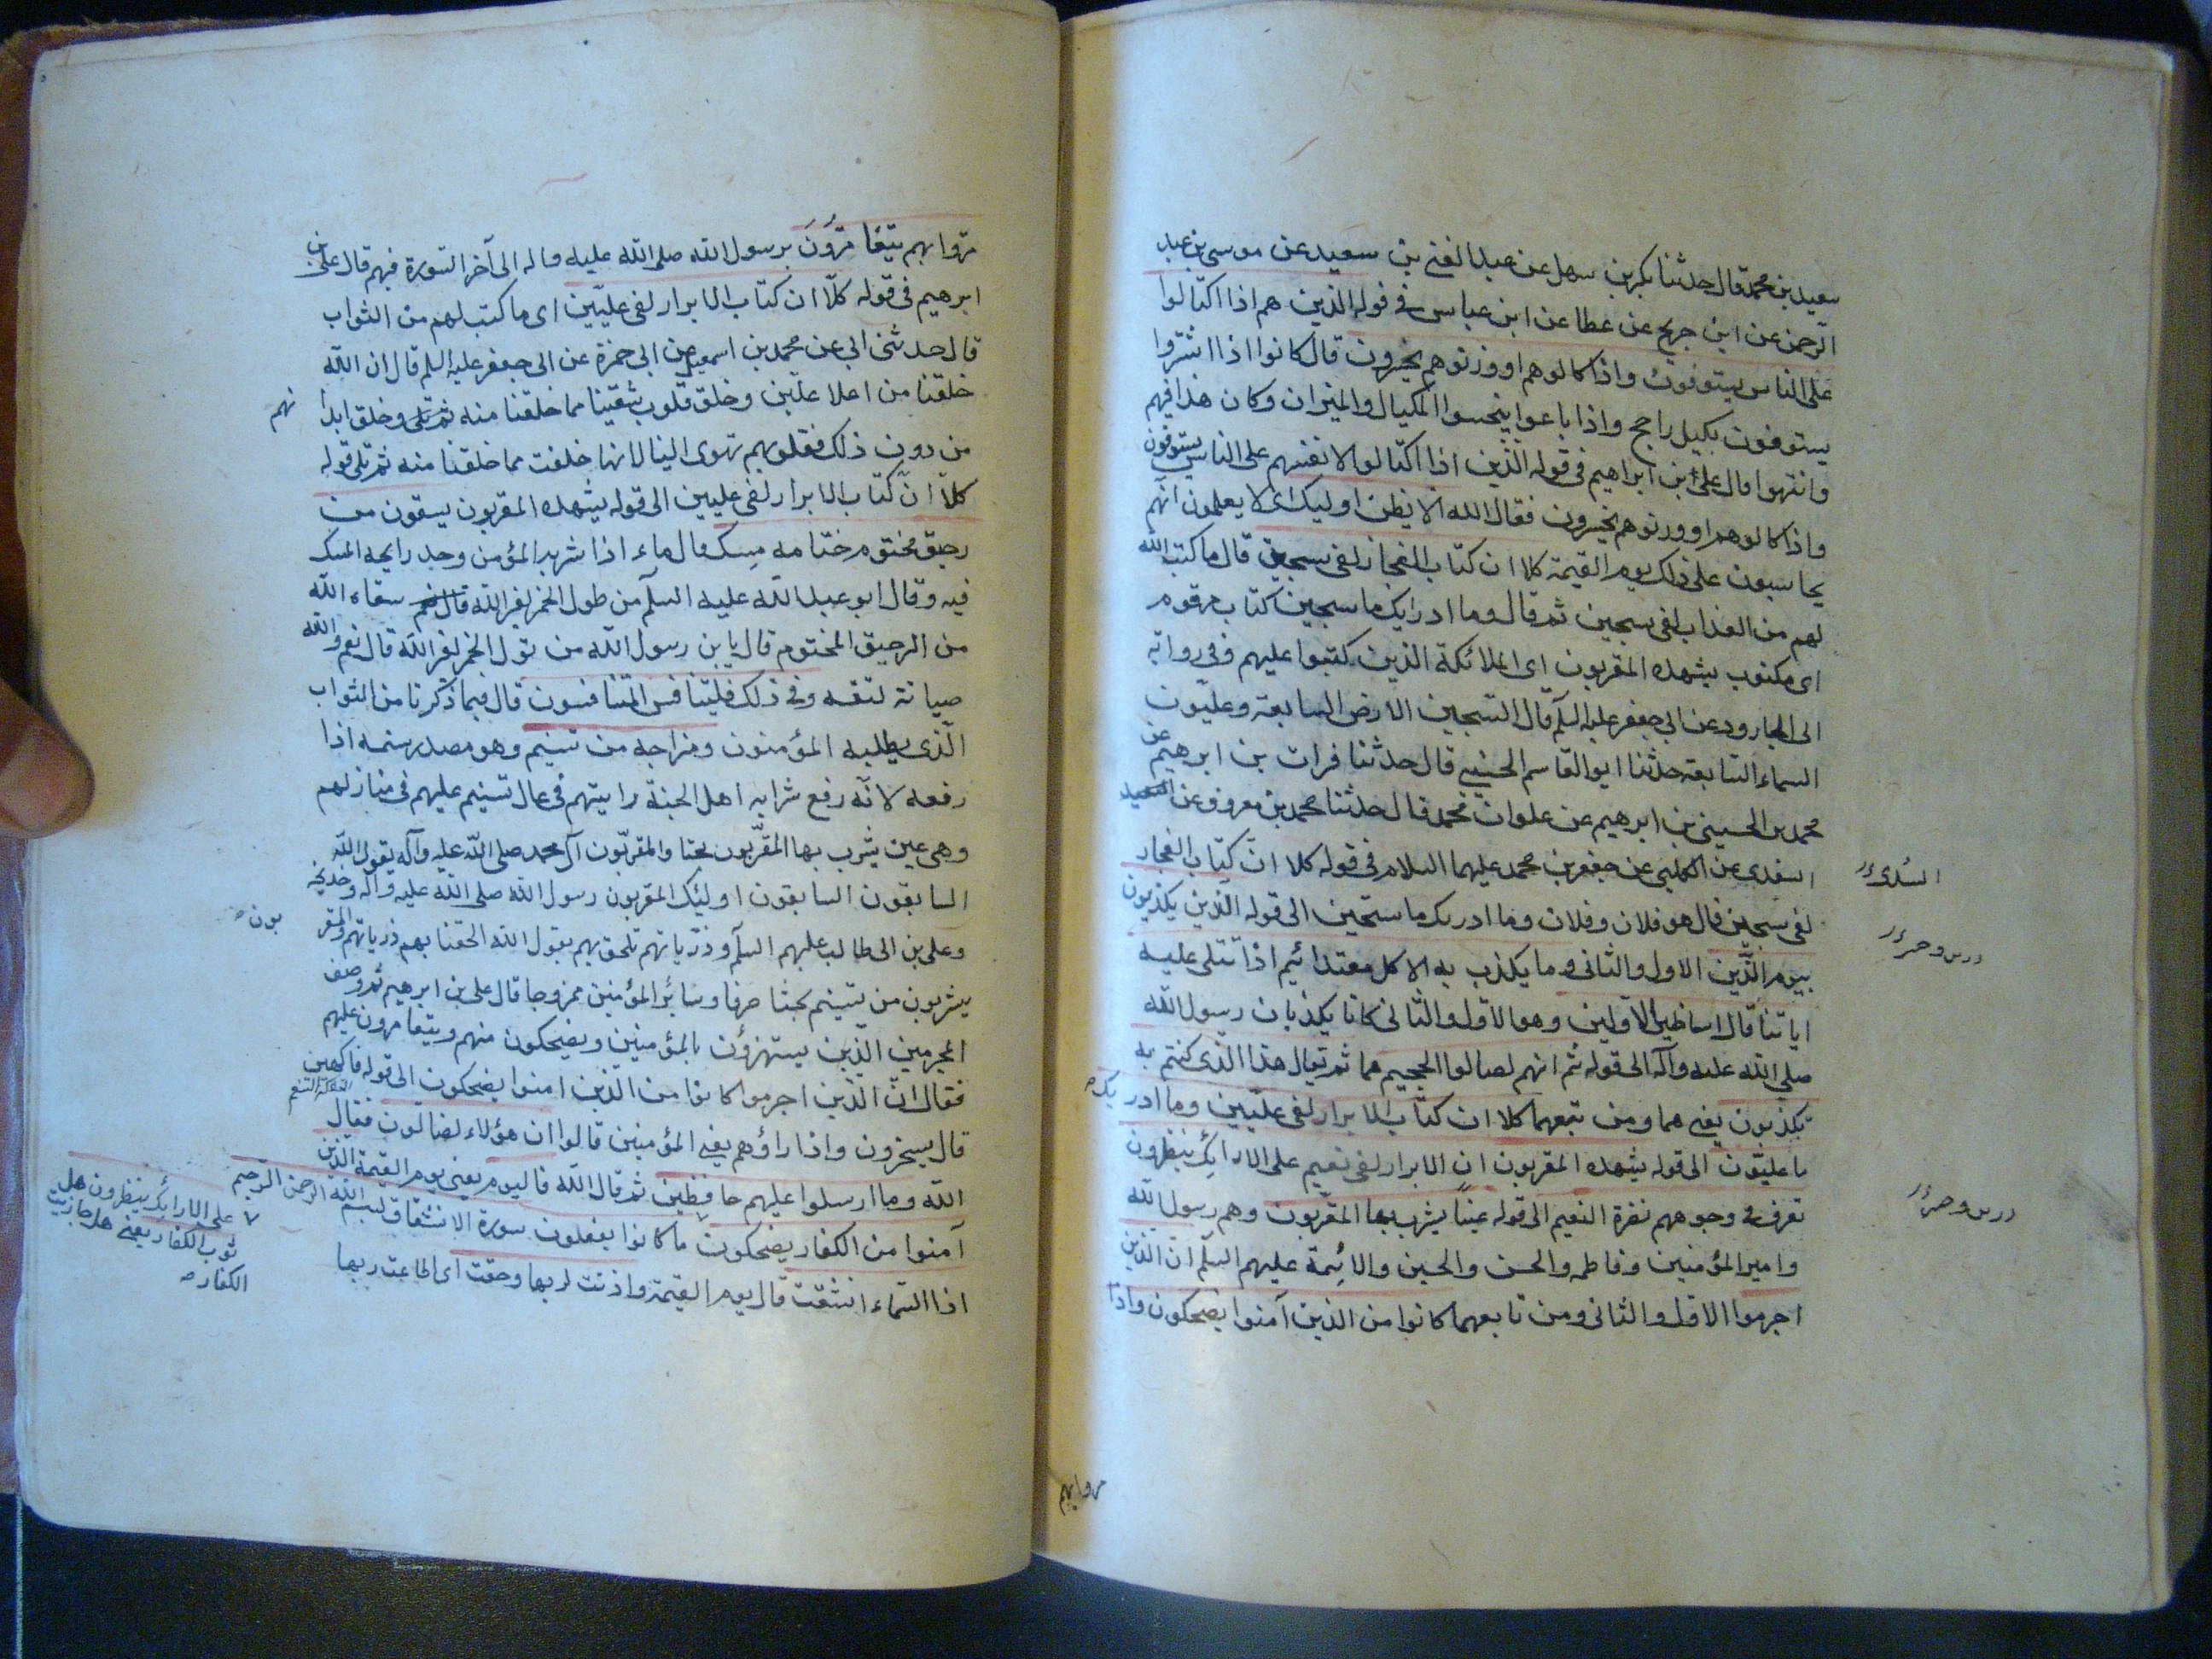 سعيد بن محمد قال حدثنا بكر بن سهل عن عبد الغني بن سعيد عن موسى بن عبد
الرحمن عن ابن جريح عن عطا عن ابن عباس في قوله الذين هم اذا اكتالوا
على الناس يستوفون واذا كالوهم او وزنوهم يخسرون قال كانوا اذا اشتروا
يستوفون بكيل راجح واذا باعوا يبخسوا المكيال والميزان وكان هذا فيهم
وانتهوا قال علي بن ابراهيم في قوله الذين اذا اكتالوا لانفسهم على الناس يستوفون
واذا كالوهم او وزنوهم يخسرون فقال الله الا يظن اوليك اى لا يعلمون انهم
يحاسبون على ذلك يوم القيمة كلا ان كتاب الفجار لفى سجين قال ما كتب الله
لهم من العذاب لفى سجين ثم قال وما ادرايك ما سجين كتاب مرقوم
اى مكتوب يشهده المقربون اى الملائكة الذين كتبوا عليهم وفى رواية
ابى الجارود عن ابى جعفر عليه السلم قال السجين الارض السابعة وعليون
السماء السابعة حدثنا ابو القاسم الحسيني قال حدثنا فرات بن ابرهيم عن
محمد بن الحسينى بن ابرهيم عن علوان محمد قال حدثنا محمد بن معروف عن
السندى عن الكلبى عن جعفر بن محمد عليهما السلام فى قوله كلا ان كتاب الفجار
السدى
لفى سجين قال هو فلان وفلان وما ادريك ما سجين الى قوله الذين يكذبون
بيوم الدين الاول والثانى وما يكذب به الا كل معتد اثيم اذا تتلى عليه
اياتنا قال اساطير الاولين وهو الاول والثانى كانا يكذبان رسول الله
صلى الله عليه وآله الى قوله ثم انهم لصالوا الجحيم هما ثم يقال هذا الذى كنتم به
تكذبون يعنى هما ومن تبعهما كلا ان كتاب الابرار لفى عليين وما ادريك
ما عليون الى قوله يشهده المقربون ان الابرار لفى نعيم على الارائك ينظرون
تعرف فى وجوههم نضرة النعيم الى قوله عينا يشرب بها المقربون وهم رسول الله
وامير المؤمنين وفاطمه والحسن والحسين والائمة عليهم السلم ان الذين
اجرموا الاول والثانى ومن تابعهما كانوا من الذين آمنوا يضحكون واذا
مروا بهم
مروا بهم يتغامزون برسول الله صلى الله عليه واله الى آخر السورة فيهم قال على بن
ابرهيم فى قوله كلا ان كتاب الابرار لفى عليين اى ما كتب لهم من الثواب
قال حدثنى ابى عن محمد بن اسمعيل عن ابى حمزة عن ابى جعفر عليه السلم قال ان الله
خلقنا من اعلا عليين وخلق قلوب شيعتنا مما خلقنا منه وخلق ابدا
نهم
من دون ذلك فقلوبهم تهوى الينا لانها خلقت مما خلقنا منه ثم تلى قوله
كلا ان كتاب الابرار لفى عليين الى قوله يشهده المقربون يسقون من
رحيق مختوم ختامه مسك قال ماء اذا شربه المؤمن وجد رايحه المسك
فيه وقال ابو عبد الله عليه السلم من ترك الخمر لغير الله سقاه الله
من الرحيق المختوم قال يا بن رسول الله من ترك الخمر لغير الله قال نعم والله
صيانة لنفسه وفى ذلك فليتنافس المتنافسون قال فيما ذكرنا من الثواب
الذى يطلبه المؤمنون ومزاجه من تسنيم وهو مصدر سنمه اذا
رفعه لانه رفع شرابه اهل الجنة راييتهم فى عال تسنيم عليهم فى منازلهم
وهى عين يشرب بها المقربون بحتا والمقربون آل محمد صلى الله عليه وآله يقول الله
السابقون السابقون اولئك المقربون رسول الله صلى الله عليه وآله وخديجه
وعلى بن ابى طالب عليهم السلم وذرياتهم تلحق بهم يقول الله الحقنا بهم ذرياتهم والمقر
بون
يشربون من تسنيم بحتا صرفا وسائر المؤمنين ممزوجا قال على بن ابرهيم ثم وصف
المجرمين الذين يستهزؤن بالمؤمنين ويضحكون منهم ويتغامزون عليهم
فقال ان الذين اجرموا كانوا من الذين امنوا يضحكون الى قوله فاكهين
قال يسخرون واذا راؤهم يعنى المؤمنين قالوا ان هؤلاء لضالون فقال
الله وما ارسلوا عليهم حافظين ثم قال الله فاليوم يعنى يوم القيمة الذين
آمنوا من الكفار يضحكون ما كانوا يفعلون سورة الانشقاق بسم الله الرحمن الرحيم
على الارائك ينظرون هل
ثوب الكفار يعنى هل جازيت
الكفار
اذا السماء انشقت قال يوم القيمة واذنت لربها وحقت اى اطاعت ربها